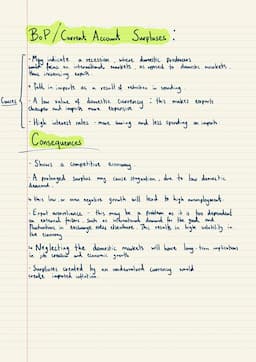 BoP / Current Account Surpluses :
- May indicate a recession, where domestic producers
focus on international markets, as opposed to domestic markets,
thus increasing exports.
Causes
- Fall in imports as a result of reduction in spending.
- A low value of domestic currency ; this makes exports
cheaper and imports more expensive
- High interest rates - more saving and less spending on imports
Consequences
- Shows a competitive economy.
- A prolonged surplus may cause stagnation, due to low domestic
demand.
↳ this low or even negative growth will lead to high unemployment.
- Export overreliance - this may be a problem as it is too dependent
on external factors, such as international demand for the good, and
fluctuations in exchange rates elsewhere. This results in high volatility in
the economy
↳ Neglecting the domestic markets will have long-term implications
in job creation and economic growth
- Surpluses created by an undervalued currency would
create imported inflation